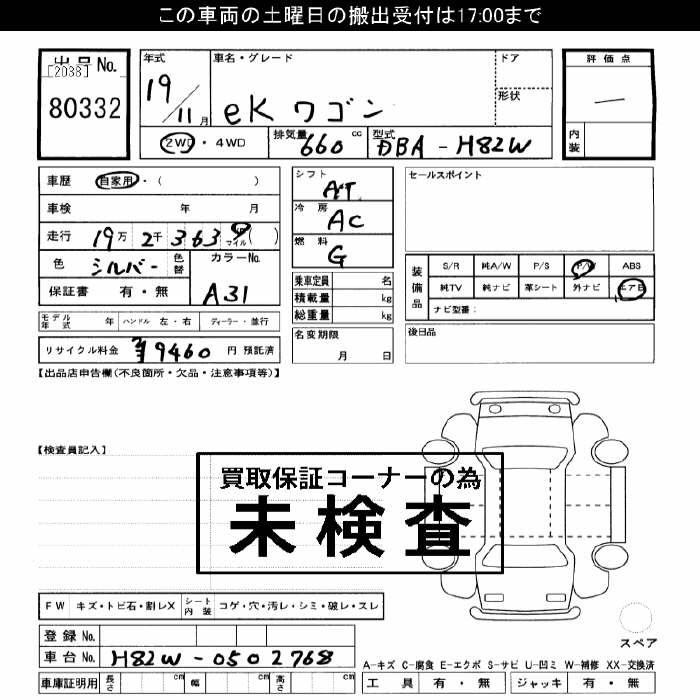 この車両の土曜日の搬出受付は17:00まで
出品No.
[2038]
80332
年式
19/11月
車名・グレード
eK ワゴン
ドア
形状
評価点
—
内装
2WD・4WD
排気量 660 cc
型式 DBA-H82W
車歴 自家用・( )
車検 年 月
走行 19万2千363 マイル( )
色 シルバー 色替
カラーNo.
A31
保証書 有・無
シフト
AT
冷房
AC
燃料
G
乗車定員 名
積載量 kg
総重量 kg
名変期限
月 日
セールスポイント
装備品
S/R 純A/W P/S P/W ABS
純TV 純ナビ 革シート 外ナビ エアB
ナビ型番:
後日品
モデル年式 年 ハンドル 左・右 ディーラー・並行
リサイクル料金 ¥9460 円 預託済
【出品店申告欄(不良箇所・欠品・注意事項等)】
【検査員記入】
買取保証コーナーの為
未検査
FW キズ・トビ石・割レX シート内装 コゲ・穴・汚レ・シミ・破レ・スレ
登録No.
車台No. H82W-0502768
車庫証明用 長さ cm 幅 cm 高さ cm
スペア
A-キズ C-腐食 E-エクボ S-サビ U-凹ミ W-補修 XX-交換済
工具 有・無 ジャッキ 有・無